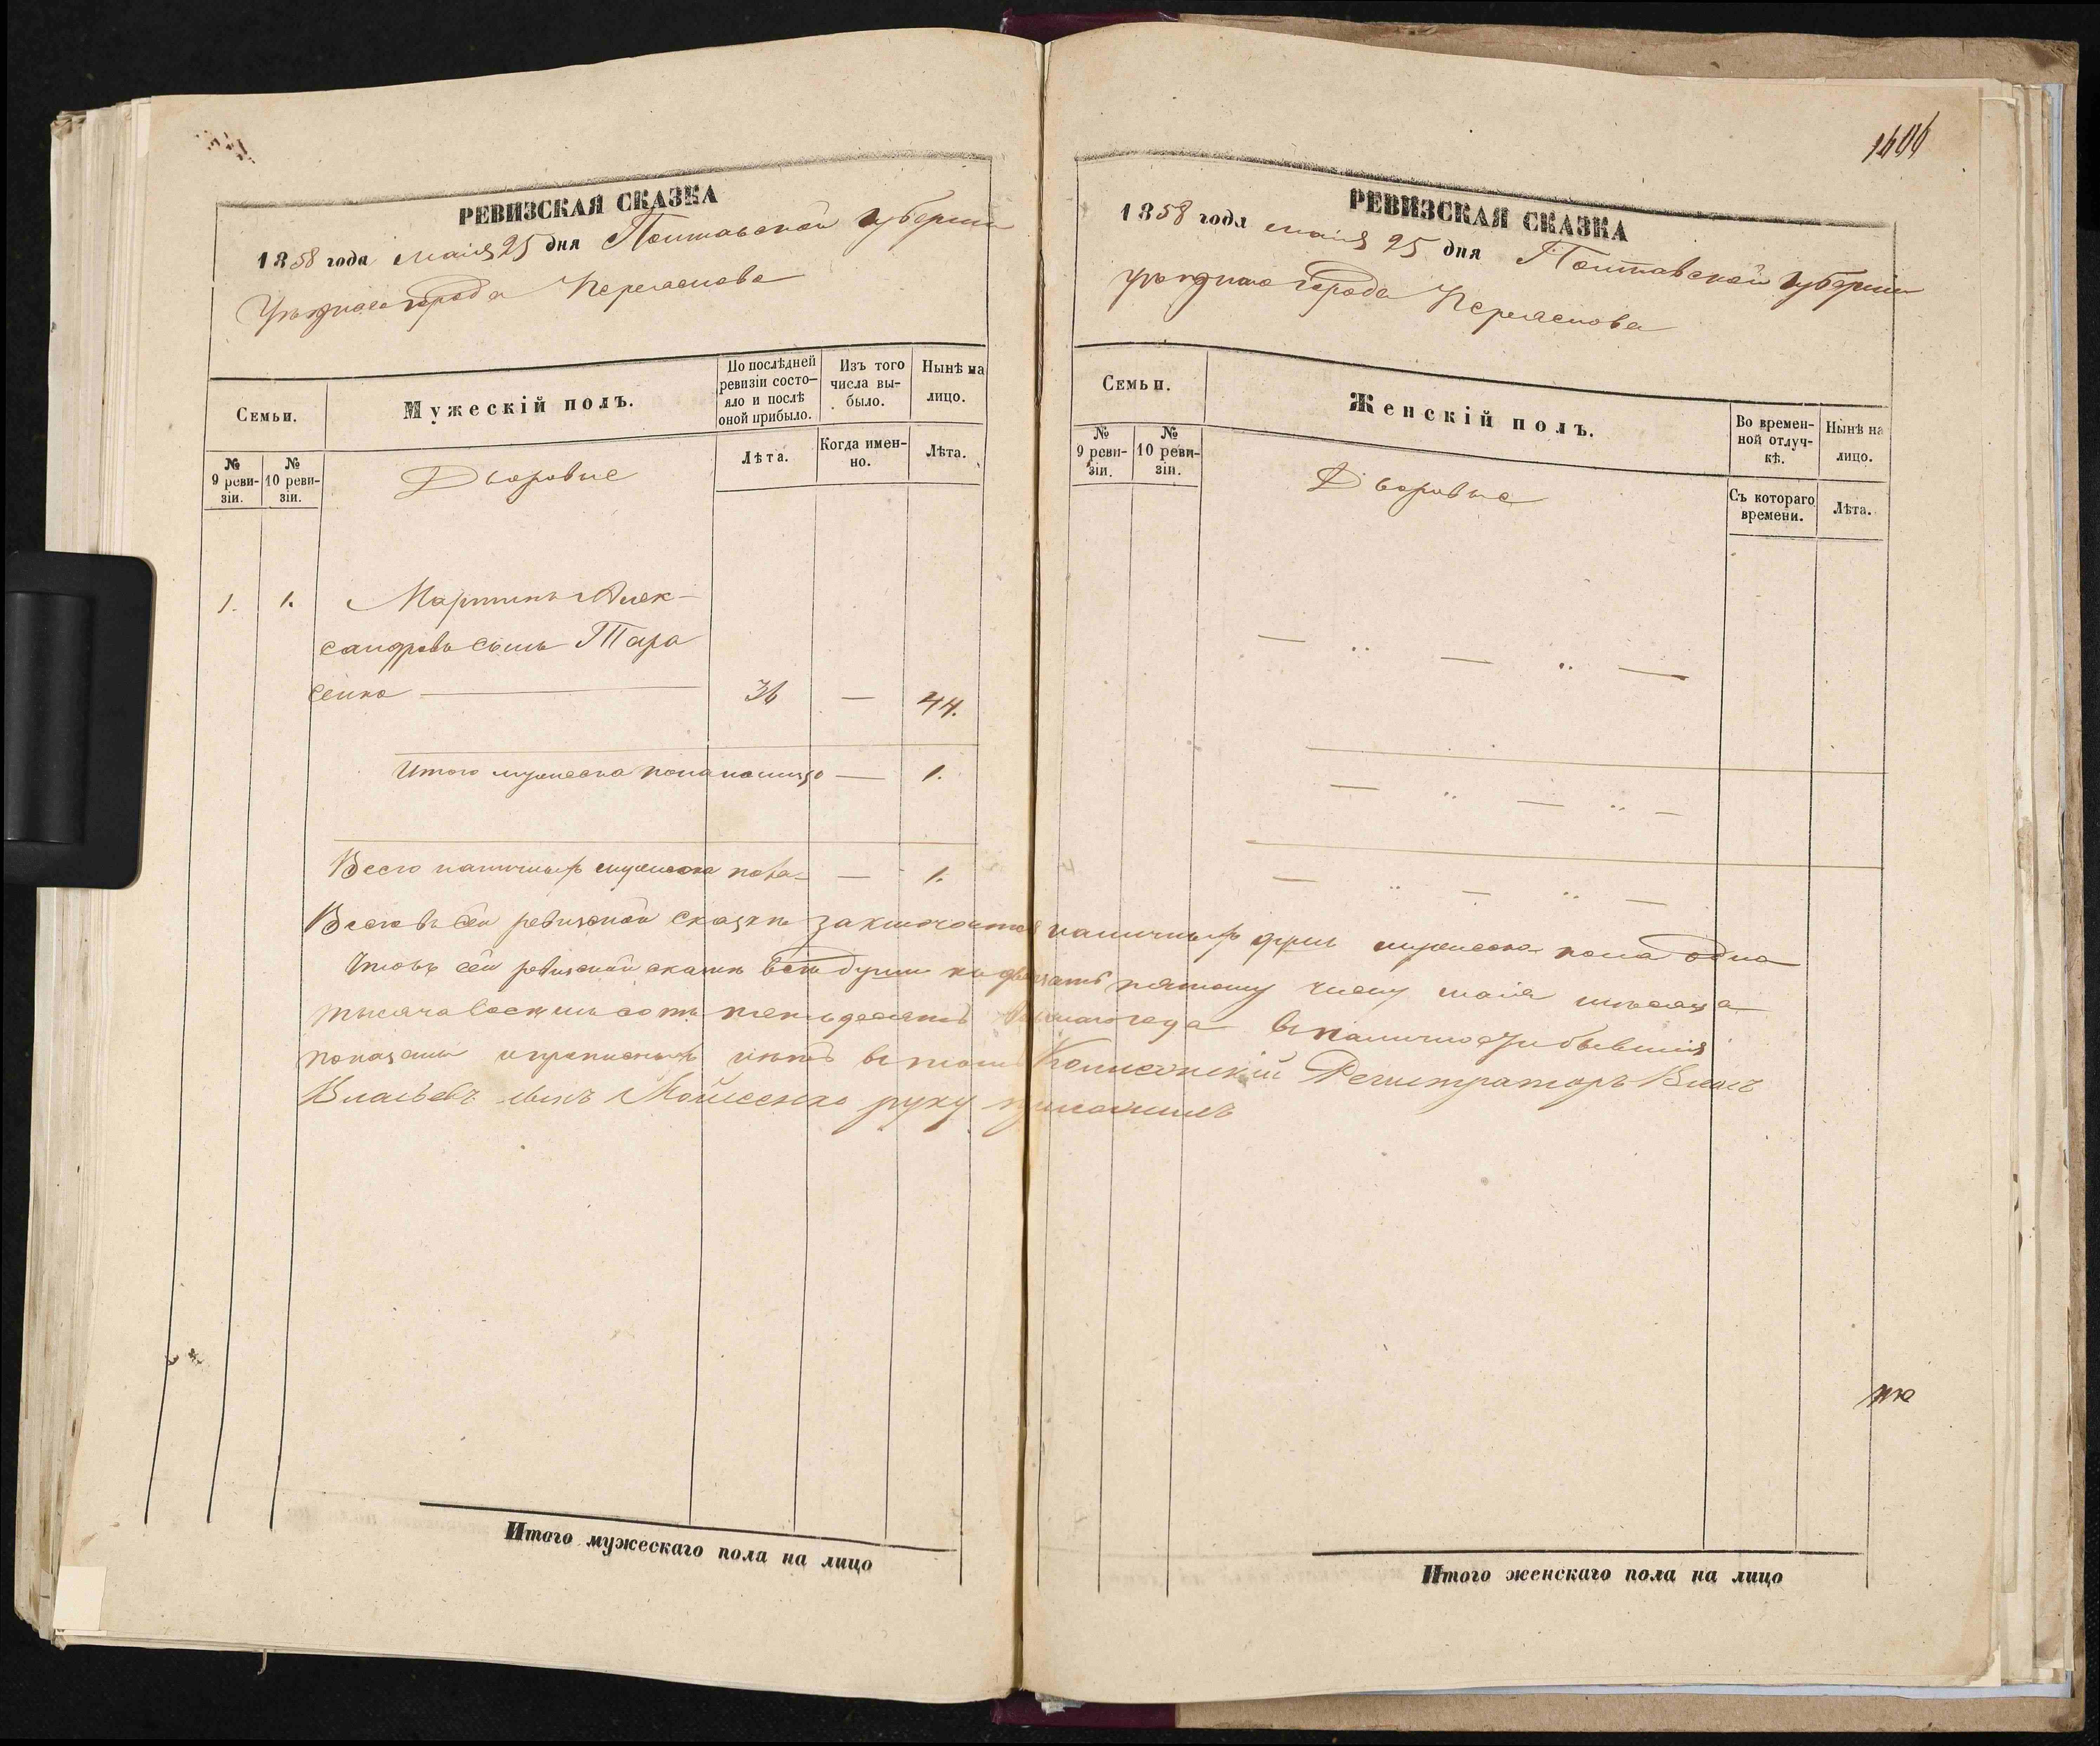 РЕВИЗСКАЯ СКАЗКА
1858 года маія 25 дня Полтавской губерніи
уѣзднаго города Переяслова
Семьи.
Мужескій полъ.
По послѣдней ревизіи состояло и послѣ оной прибыло.
Изъ того числа выбыло.
Нынѣ на лицо.
№ 9 ревизіи.
№ 10 ревизіи.
Дворовые
Лѣта.
Когда именно.
Лѣта.
1. 1. Мартинъ Алек-
сандровъ сынъ Тара
сенко — 36 — 44.
Итого мужеска пола налицо — 1.
Всего наличныхъ мужеска пола — 1.
1404
РЕВИЗСКАЯ СКАЗКА
1858 года маія 25 дня Полтавской губерніи
уѣзднаго города Переяслова
Семьи.
Женскій полъ.
Во временной отлучкѣ.
Нынѣ на лицо.
№ 9 ревизіи.
№ 10 ревизіи.
Дворовые
Съ котораго времени.
Лѣта.
Всего въ сей ревизской сказкѣ заключается наличныхъ душъ мужеска пола одна
Что въ сей ревизской сказкѣ всѣ души по двадцать пятому числу маія мѣсяца
тысяча восемьсотъ пятьдесятъ восьмаго года въ наличіе
показаны и прописныхъ нѣтъ въ томъ Колежскій Регистраторъ Власъ
Власьевъ сынъ Мойсенко руку приложилъ
Итого мужескаго пола на лицо
Итого женскаго пола на лицо